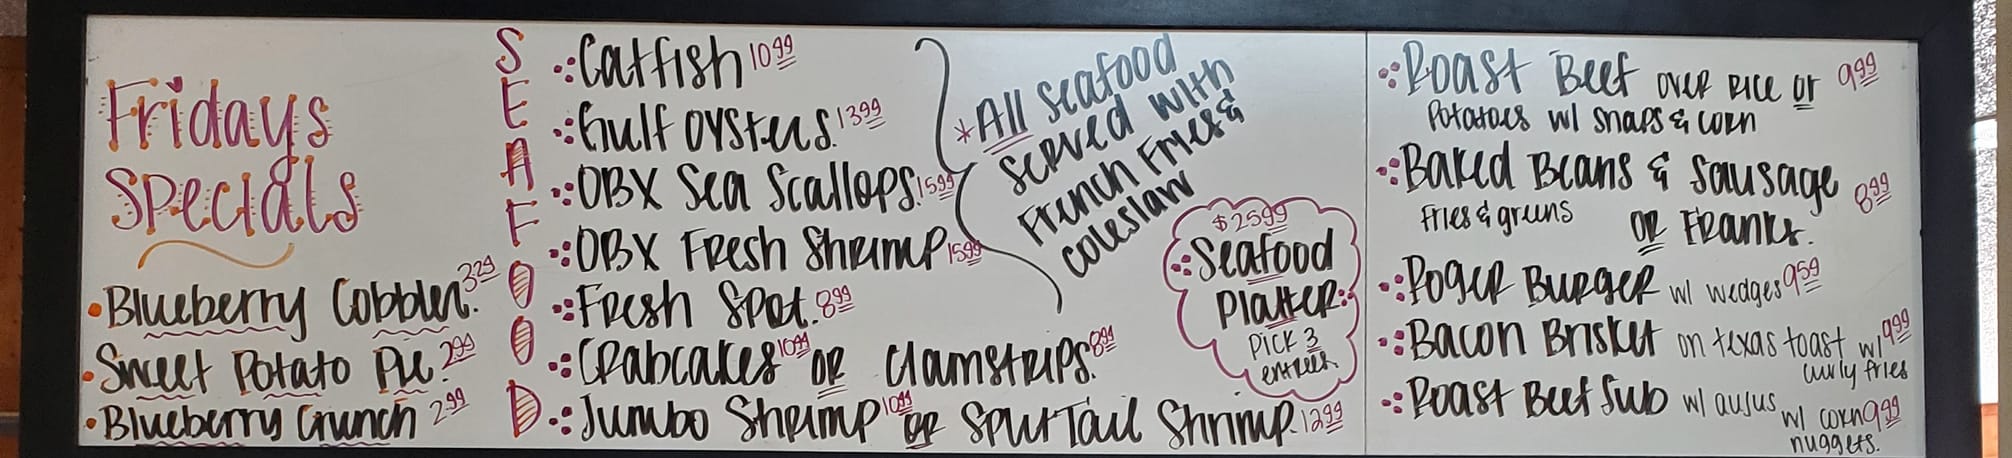 Fridays
Specials
Blueberry Cobbler. 3.29
Sweet Potato Pie. 2.99
Blueberry Crunch 2.99
SEAFOOD
Catfish 10.99
Gulf Oysters. 13.99
OBX Sea Scallops. 15.99
OBX Fresh Shrimp 15.99
Fresh Spot. 8.99
Crabcakes 10.99 or Clamstrips. 8.99
Jumbo Shrimp 10.99 or Split Tail Shrimp. 12.99
*All Seafood
served with
French Fries &
coleslaw
$25.99
Seafood
Platter:
Pick 3
entrees.
Roast Beef over rice or 9.99
Potatoes w/ snaps & corn
Baked Beans & Sausage 8.99
fries & greens or Franks.
Roger Burger w/ wedges 9.59
Bacon Brisket on texas toast w/ 9.99
curly fries
Roast Beef Sub w/ aujus w/ corn 9.99
nuggets.